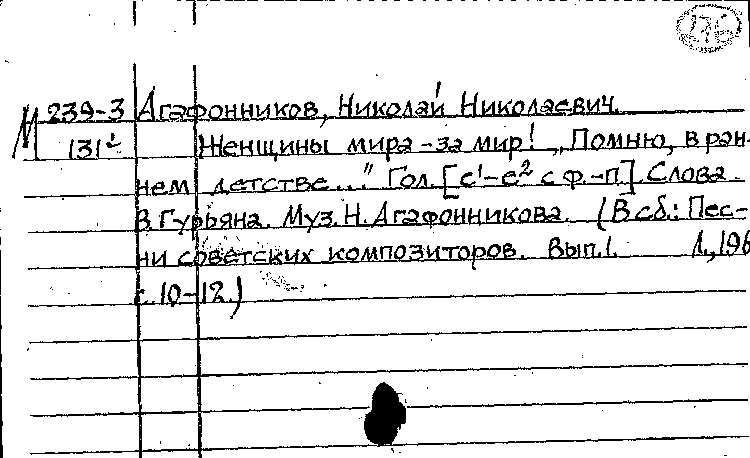 276
М 239-3 Агафонников, Николай Николаевич.
131² Женщины мира - за мир! „Помню, в ран-
нем детстве..." Гол. [c¹-e² с ф.-п.]. Слова
В. Гурьяна. Муз. Н. Агафонникова. (В сб.: Пес-
ни советских композиторов. Вып. 1. Л., 196
с. 10-12.)